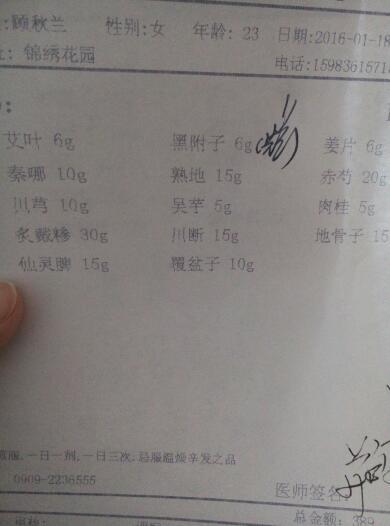 :顾秋兰 性别:女 年龄: 23 日期:2016-01-18
: 锦绣花园 电话:1598361571
艾叶 6g 黑附子 6g 姜片 6g
秦哪 10g 熟地 15g 赤芍 20g
川芎 10g 吴芋 5g 肉桂 5g
炙 30g 川断 15g 地骨子 15
仙灵脾 15g 覆盆子 10g
服.一日一剂,一日三次.忌服温燥辛发之品
0909-2236555
医师签名:
总金额: 389